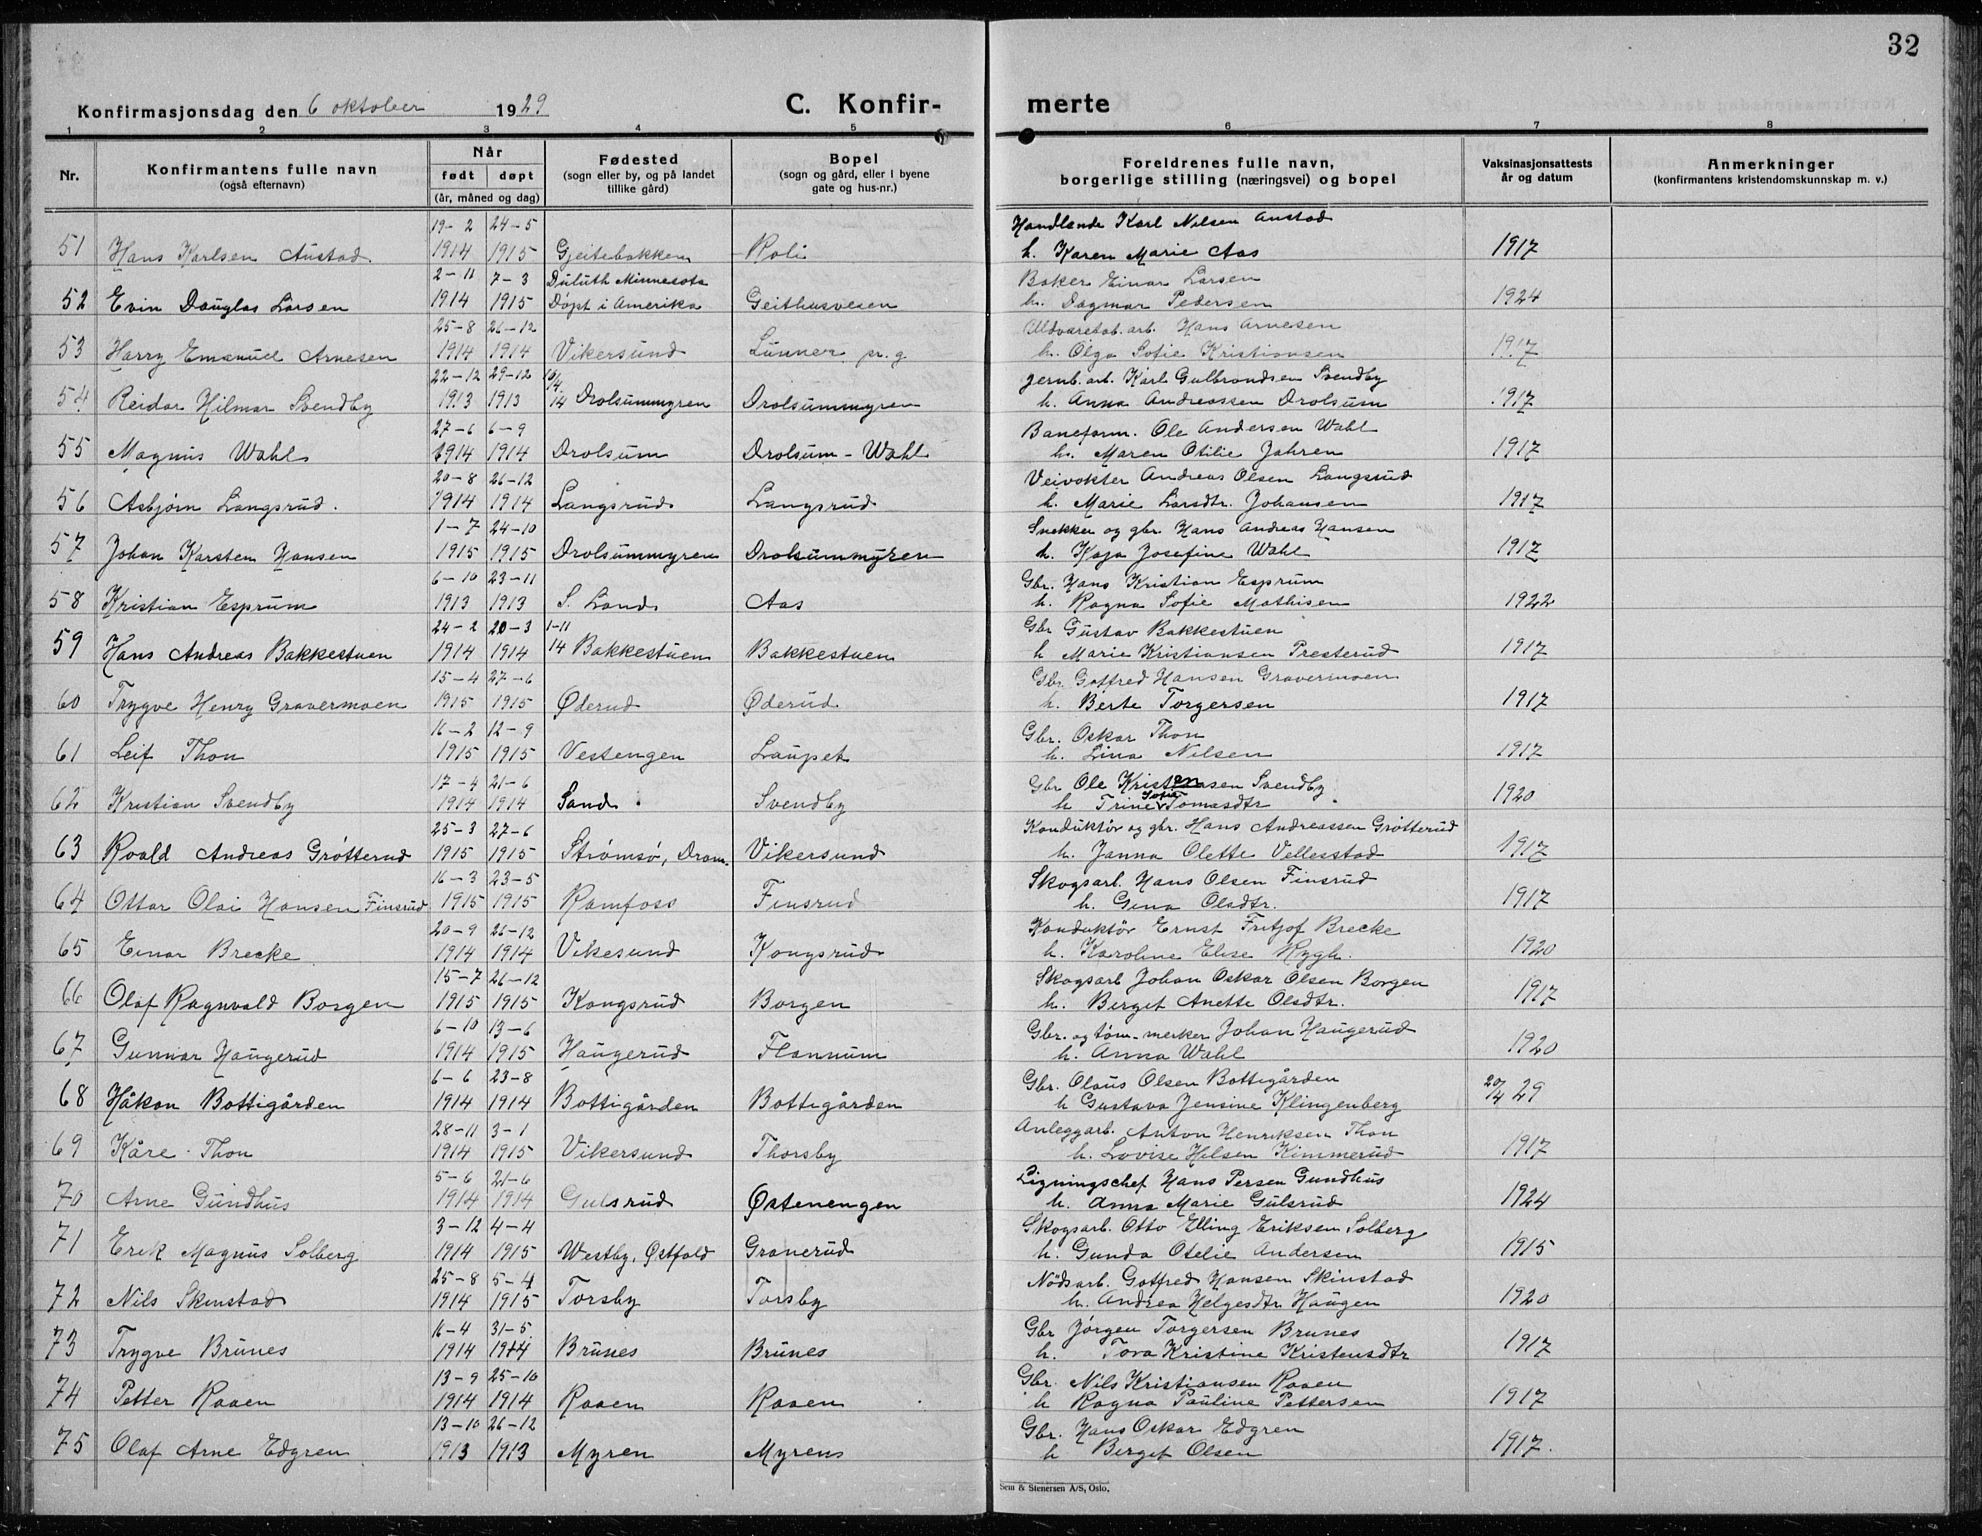 32
Konfirmasjonsdag den 6 oktober 1929 C. Konfirmerte
1 2 3 4 5 6 7 8
Nr. Konfirmantens fulle navn (også efternavn) Når født døpt (år, måned og dag) Fødested (sogn eller by, og på landet tillike gård) Bopel (sogn og gård, eller i byene gate og hus-nr.) Foreldrenes fulle navn, borgerlige stilling (næringsvei) og bopel Vaksinasjonsattests år og datum Anmerkninger (konfirmantens kristendomskunnskap m. v.)
19-2 24-5 Handlende Karl Nilsen Austad
51 Hans Karlsen Austad 1914 1915 Gjeitebakken Roli h. Karen Marie Aas 1917
2-11 7-3 Duluth Minnesota Baker Einar Larsen
52 Evin Douglas Larsen 1914 1915 Døpt i Amerika Geithusveien h. Dagmar Pedersen 1924
25-8 26-12 Uldvarefab. arb. Hans Arnesen
53 Harry Emanuel Arnesen 1914 1914 Vikersund Lunner pr. g. h. Olga Sofie Kristiansen 1917
22-12 29-12 16/4 Jernb. arb. Karl Gulbrandsen Svendby
54 Reidar Hilmar Svendby 1913 1913 14 Drolsummyren Drolsummyren h. Anna Andreassen Drolsum 1917
27-6 6-9 Baneform. Ole Andersen Wahl
55 Magnus Wahl 1914 1914 Drolsum Drolsum - Wahl h. Maren Otilie Jahren 1917
20-8 26-12 Veivokter Andreas Olsen Langsrud
56 Asbjørn Langsrud. 1914 1914 Langsrud Langsrud h. Marie Larsdtr. Johansen 1917
1-7 24-10 Snekker og gbr. Hans Andreas Hansen
57 Johan Karsten Hansen 1915 1915 Drolsummyren Drolsummyren h. Kaja Josefine Wahl 1917
6-10 23-11 Gbr. Hans Kristian Esprum
58 Kristian Esprum 1913 1913 S. Land Aas h. Ragna Sofie Mathisen 1922
24-2 20-3 1-11 Gbr Gustav Bakkestuen
59 Hans Andreas Bakkestuen 1914 1914 14 Bakkestuen Bakkestuen h Marie Kristiansen Presterud 1917
15-4 27-6 Gbr. Gotfred Hansen Gravermoen
60 Trygve Henry Gravermoen 1915 1915 Øderud Øderud h. Berte Torgersen 1917
16-2 12-9 Gbr. Oskar Thon
61 Leif Thon 1915 1915 Vestengen Laupet h. Lina Nilsen 1917
17-4 21-6 Gbr Ole Kristensen Svendby
62 Kristian Svendby 1914 1914 Sand Svendby h Trine Sofie Tomasdtr 1920
25-3 27-6 Konduktør og gbr. Hans Andreassen Grøtterud
63 Roald Andreas Grøtterud 1915 1915 Strømsø, Dram. Vikersund h. Janna Olette Vellesstad 1917
16-3 23-5 Skogsarb. Hans Olsen Finsrud
64 Ottar Olai Hansen Finsrud 1915 1915 Ramfoss Finsrud h. Gina Olsdtr. 1917
20-9 26-12 Konduktör Ernst Fritjof Brecke
65 Einar Brecke 1914 1914 Vikesund Kongsrud h. Karoline Elise Rygh. 1920
15-7 26-12 Skogsarb Johan Oskar Olsen Borgen
66 Olaf Ragnvald Borgen 1915 1915 Kongsrud Borgen h. Berget Anette Olsdtr. 1917
6-10 13-6 Gbr. og töm-merker Johan Haugerud
67 Gunnar Haugerud 1914 1915 Haugerud Flannum h. Anna Wahl 1920
6-6 23-8 Gbr. Olaus Olsen Bottigården
68 Håkon Bottigården 1914 1914 Bottigården Bottigården h Gustava Jensine Klingenberg 20/4 29
28-11 3-1 Anleggarb. Anton Henriksen Thon
69 Kåre Thon 1914 1915 Vikersund Thorsby h. Lovise Nilsen Kimmerud 1917
5-6 21-6 Ligningschef Hans Persen Gundhus
70 Arne Gundhus 1914 1914 Gulsrud Østenengen h. Anna Marie Gulsrud 1924
3-12 4-4 Skogsarb. Otto Elling Eriksen Solberg
71 Erik Magnus Solberg 1914 1915 Westby, Østfold Granerud h. Gunda Otelie Andersen 1915
25-8 5-4 Nödsarb. Gotfred Hansen Skinstad
72 Nils Skinstad 1914 1915 Torsby Torsby h. Andrea Helgesdtr Haugen 1920
16-4 31-5 Gbr Jörgen Torgersen Brunes
73 Trygve Brunes 1914 1914 Brunes Brunes h. Tora Kristine Kristensdtr 1917
13-9 25-10 Gbr. Nils Kristiansen Raaen
74 Petter Raaen 1914 1914 Raaen Raaen h Ragna Pauline Pettersen 1917
13-10 26-12 Gbr. Hans Oskar Edgren
75 Olaf Arne Edgren 1913 1913 Myren Myrens h Berget Olsen 1917.
Sem & Stenersen A/S, Oslo.